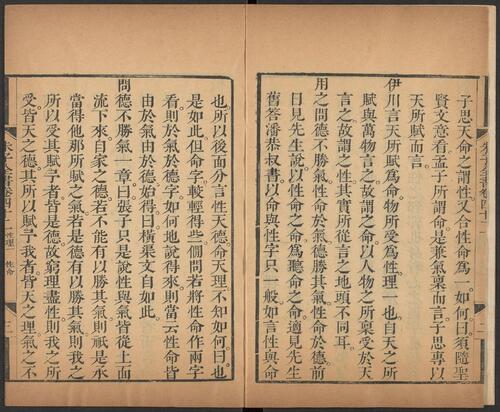 子思天命之謂性又合性命為一如何曰須隨聖
賢文意看孟子所謂命是兼氣稟而言子思專以
天所賦而言
伊川言天所賦為命物所受為性理一也自天之所
賦與萬物言之故謂之命以人物之所稟受於天
言之故謂之性其實所從言之地頭不同耳
用之問德不勝氣性命於氣德勝其氣性命於德前
日見先生說以性命之命為聽命之命適見先生
舊答潘恭叔書以命與性字只一般如言性與命
也所以後面分言性天德命天理不知如何曰也
是如此但命字較輕得些僩問若將性命作兩字
看則於氣於德字如何地說得來則當云性命皆
由於氣由於德始得曰橫渠文自如此
問德不勝氣一章曰張子只是說性與氣皆從上面
流下來自家之德若不能有以勝其氣則祇是承
當得他那所賦之氣若是德有以勝其氣則我之
所以受其賦予者皆是德故窮理盡性則我之所
受皆天之德其所以賦予我者皆天之理氣之不
朱子全書卷四十二 性理 性命 三